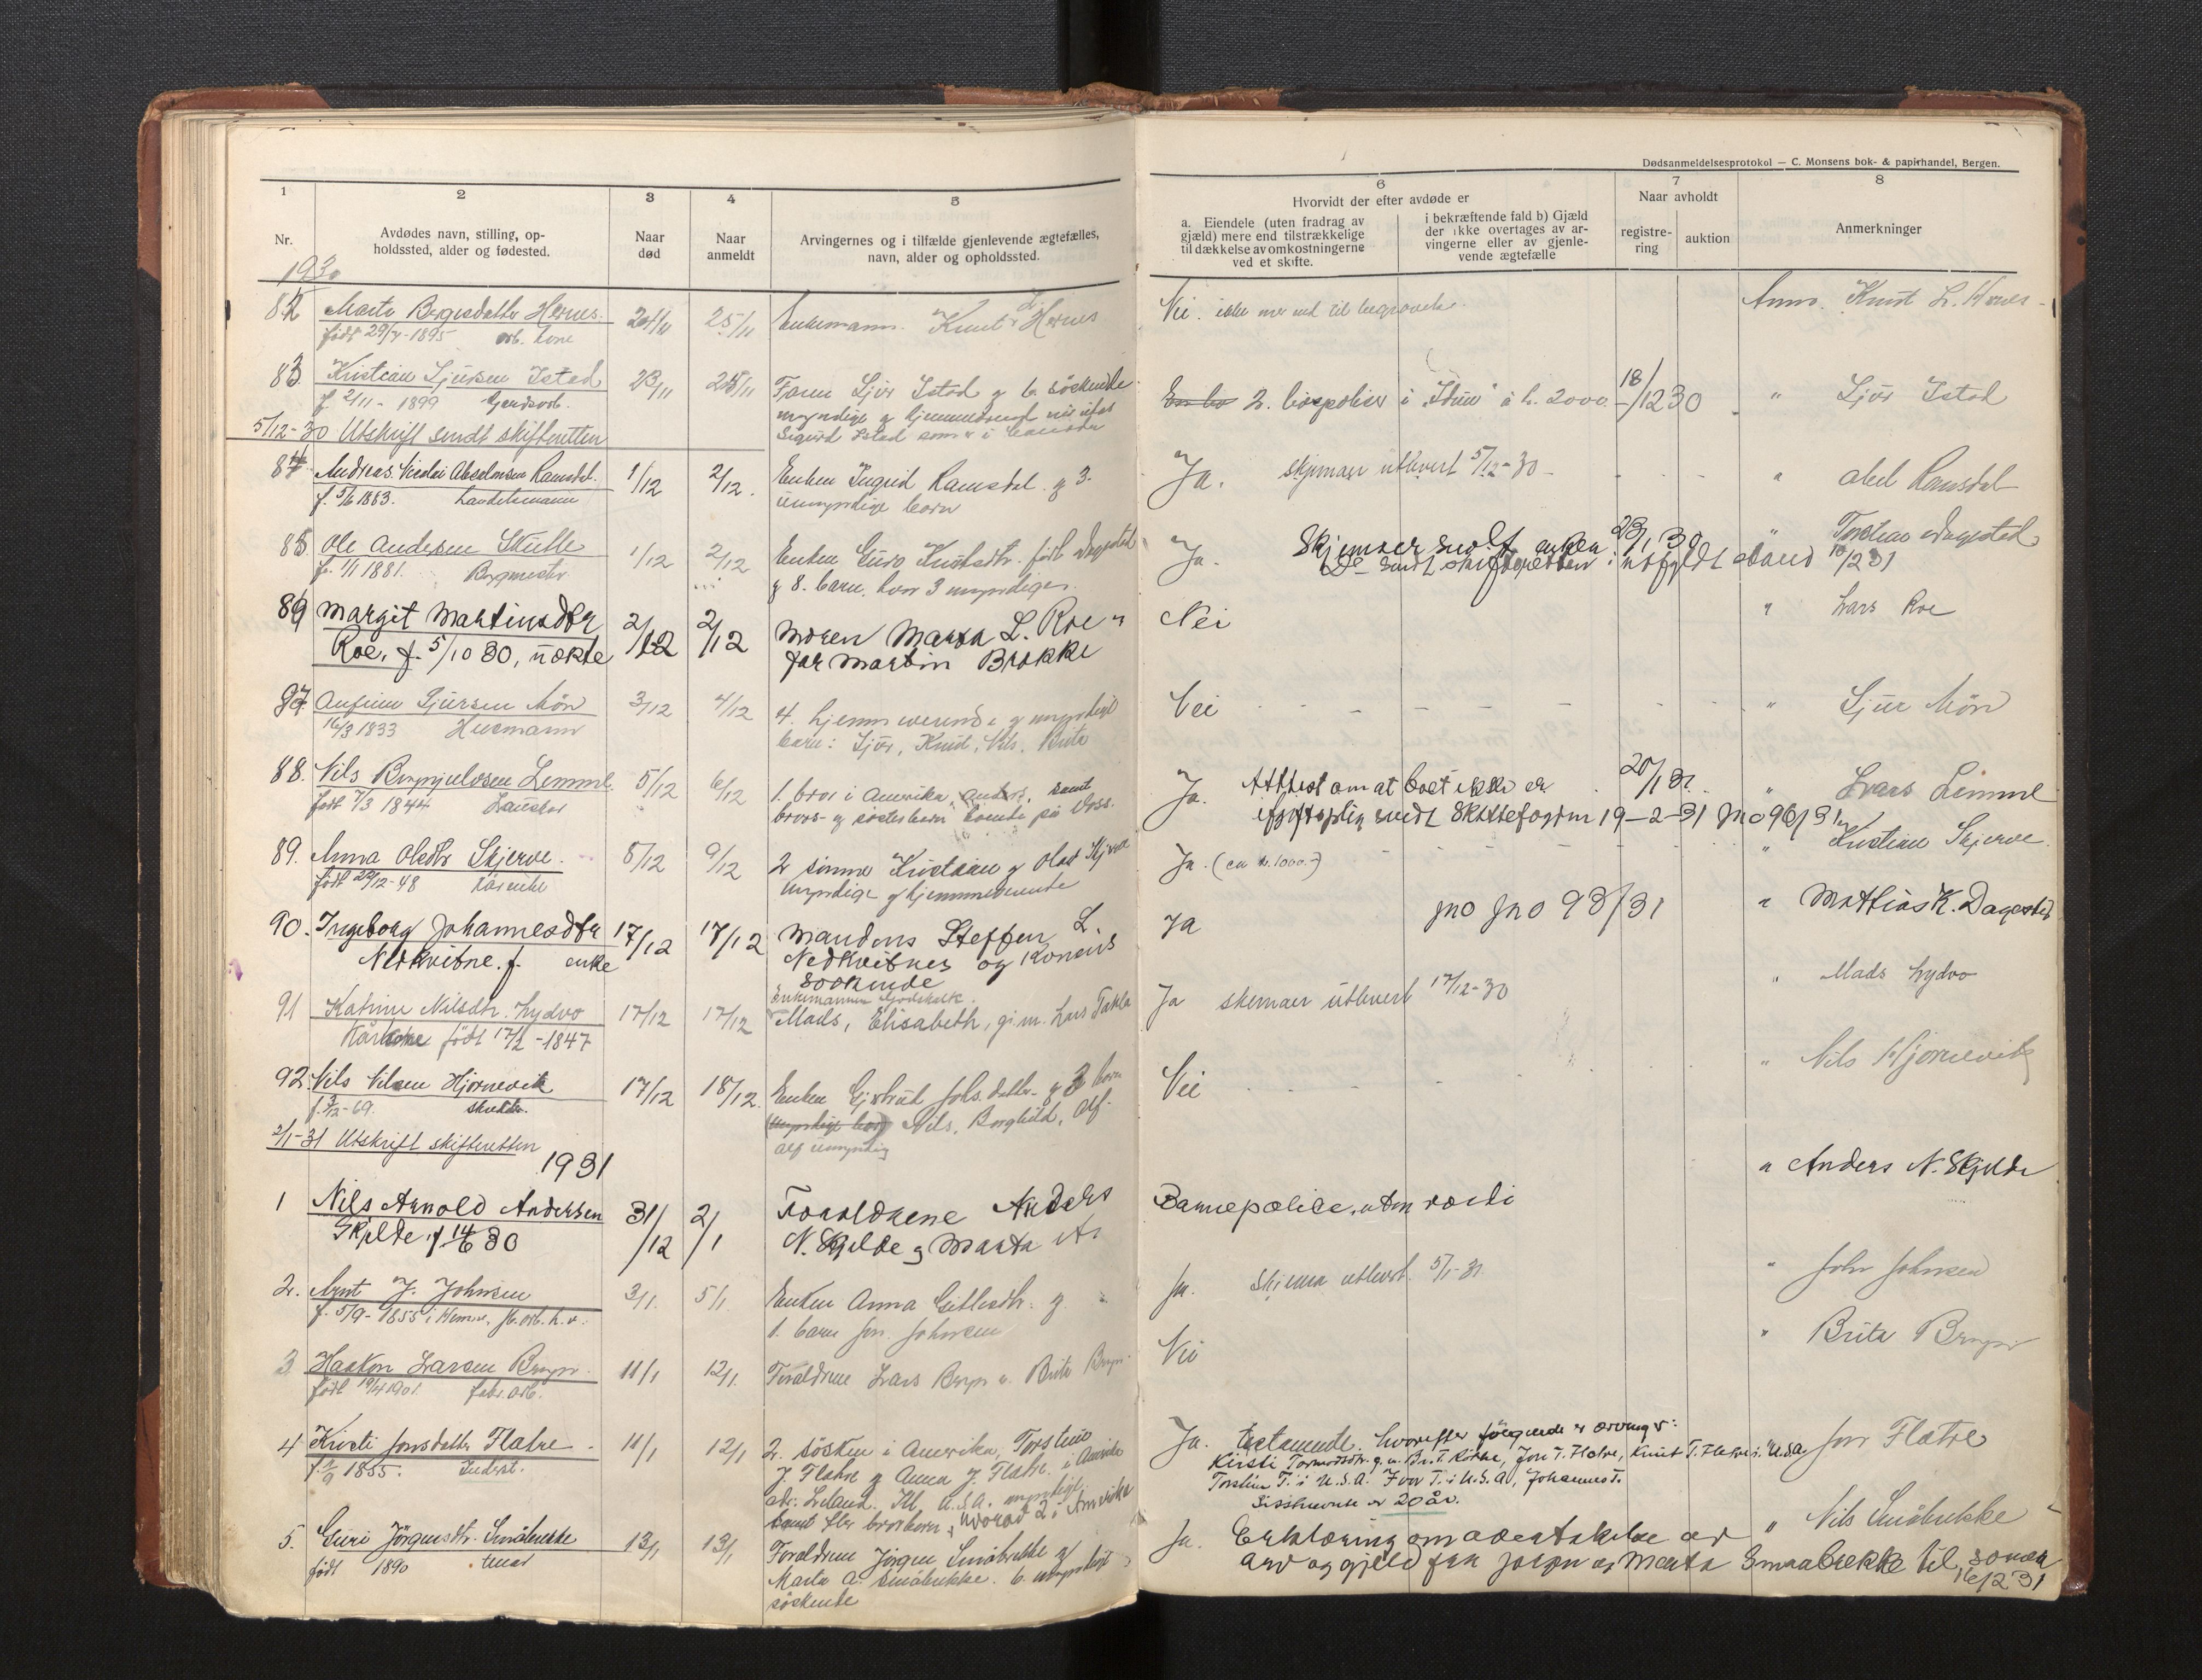 Dødsanmeldelsesprotokol — C. Monsens bok- & papirhandel, Bergen.
1
2
3
4
5
6
7
8
Nr.
Avdødes navn, stilling, op-
holdssted, alder og fødested.
Naar
død
Naar
anmeldt
Arvingernes og i tilfælde gjenlevende ægtefælles,
navn, alder og opholdssted.
Hvorvidt der efter avdøde er
a. Eiendele (uten fradrag av
gjæld) mere end tilstrækkelige
til dækkelse av omkostningerne
ved et skifte.
i bekræftende fald b) Gjæld
der ikke overtages av ar-
vingerne eller av gjenle-
vende ægtefælle
Naar avholdt
registre-
ring
auktion
Anmerkninger
1930
82 Marta Hernes 25/11 Enkemann Knut L. Hernes Nei Anm. Knut L. Hernes
83 Kristian Sjursen Istad 23/11 25/11 Faren Sjur Istad og 6 söskende 2. livspoliser i "Idun" á kr. 2000 18/12 30 " Sjur Istad
f. 2/11 - 1899 Gardsarb.
Sigurd Istad som er i
5/12-30 Utskrift sendt skifteretten
84 Andreas Nicolai Abselonsen Ramsdal 1/12 2/12. Enken Ingrid Ramsdal og 3 Ja. skjemaer utlevert 5/12-30 - " Abel Ramsdal
f. 5/6 1883. Landhandelsmann umyndige barn
85 Ole Andersen Skutle 1/12 2/12 Enken Guro Knutsdtr. född Dagestad Ja. Skjemaer sendt enken 23/1 30 " Torstein Dagestad
f. 1/1 1881. og 8. barn, hvor 3 umyndige. Do sendt skifteretten i utfyldt stand 10/2 31
86 Margit Martinsdtr 2/12 2/12 Moren Marta L. Roe Nei " Lars Roe
Roe, f. 5/10 30, ugkte far Martin Brekke
87 Anfinn Sjursen Mön 3/12 4/12 4 hjemmeværende og myndige Nei " Sjur Mön
16/3 1833 Husmann barn: Sjur, Knut, Nils, Brita
88. Nils Brynjulvsen Lemme 5/12 6/12 1. bror i Amerika, Anders, samt Ja. Attest om at boet ikke er 20/1 31. " Lars Lemme
född 7/3 1844 brors- og söstersbarn på Voss. sendt Skattefogden 19-2-31 Jno 96/31
89. Anna Olsdtr Skjerve. 8/12 9/12 2 sönner Kristian og Olav Skjerve Ja. (ca kr. 1000.-) " Kristian Skjerve.
född 22/12-48 Kårenke myndige og hjemmeværende
90. Ingeborg Johannesdtr 17/12 17/12 Mandens Steffen L. Ja Jno Jno 93/31 " Mathias K. Dagestad
Nedkvitne. f. enke Nedkvitnes og Konens
söskende
91 Katrine Nilsdtr. Lydvo 17/12 17/12 Enkemannen Mads, Elisabeth, g.m. Lars Takla Ja skemaer utlevert 17/12-30 " Mads Lydvo
Kårkone född 17/2 -1847
92. Nils Nilsen Hjörnevik 17/12 18/12. Enken Gjertrud Johs.datter og 3 barn Nei " Nils Hjörnevik
f. 3/12-69. Skredder. Nils, Borghild, Alf
Alf umyndig
2/1-31 Utskrift skifteretten
1931
1 Nils Arnold Andersen 31/12 2/1 Foreldrene Anders Barnepolise, uten verdi " Anders N. Skjelde
Skjelde f. 14/6 30 N. Skjelde og Marta
2. Arnt J. Johnsen 3/1. 5/1. Enken Anna Gitlesdtr. og Ja. Skjema utlevert 5/1-31 " John Johnsen
f. 5/9-1855 i 1. barn Jon Johnsen
3 Haakon Larsen Bryn 11/1 12/1. Foreldrene Lars Bryn og Brita Bryn Nei " Brita Bryn
född 19/4 1901. fabr. arb.
4 Kirsti Jonsdatter Flatre 11/1 12/1 2. sösken i Amerika, Torstein Ja. Testamente, hvorefter fölgende er arvinger: Jon Flatre
J. Flatre og Anna J. Flatre i Amerika
Kirsti Tormodsdtr. g.m. Br. T. Rokne, Jon T. Flatre, Knut T. Flatre i U.S.A.
Torstein T. i U.S.A. Ivar T. i U.S.A, Johannes T.
Sistnevnte er 20 år.
samt fler brorbarn, hvorav 2 i Amerika
5. Guri Jörgensdtr. Småbrekke 13/1 13/1 Foreldrene Jörgen Småbrekke og Ja. Erklæring om overtakelse av " Nils Småbrekke
född 1890 Marta A. Småbrekke. 6. myndige arv og gjeld fra Jørgen og Marta Smaabrekke til sönnen
söskende 16/2 31